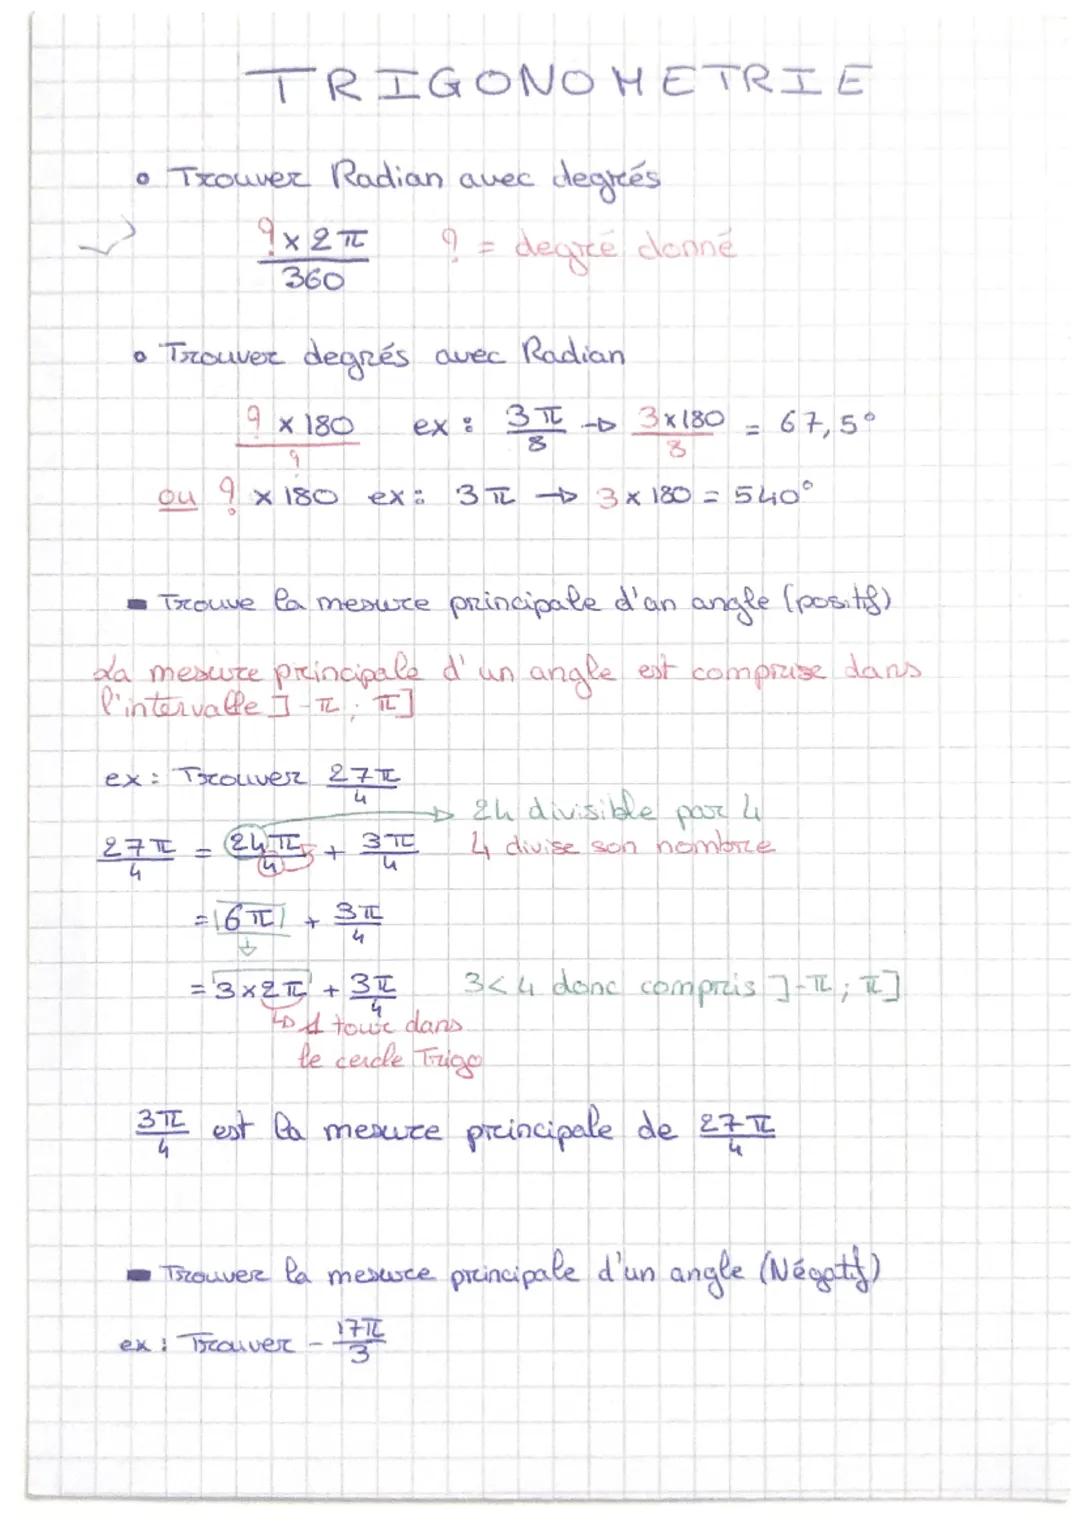 TRIGONOMETRIE
• Trouver Radian avec degrés
?×2π/360 ? = degré donné
• Trouver degrés avec Radian
?×180/? ex : 3π/8 → 3×180/8 = 67,5°
ou ?×180 ex : 3π → 3×180 = 540°
- Trouve la mesure principale d'an angle (positif)
La mesure principale d'un angle est comprise dans
l'intervalle ]-π ; π]
ex : Trouver 27π/4
→ 24 divisible par 4
27π/4 = 24π/4 + 3π/4 4 divise son nombre
= 6π + 3π/4
= 3×2π + 3π/4 3<4 donc compris ]-π ; π]
↳ 1 tour dans
le cercle Trigo
3π/4 est la mesure principale de 27π/4
- Trouver la mesure principale d'un angle (Négatif)
ex : Trouver - 17π/3